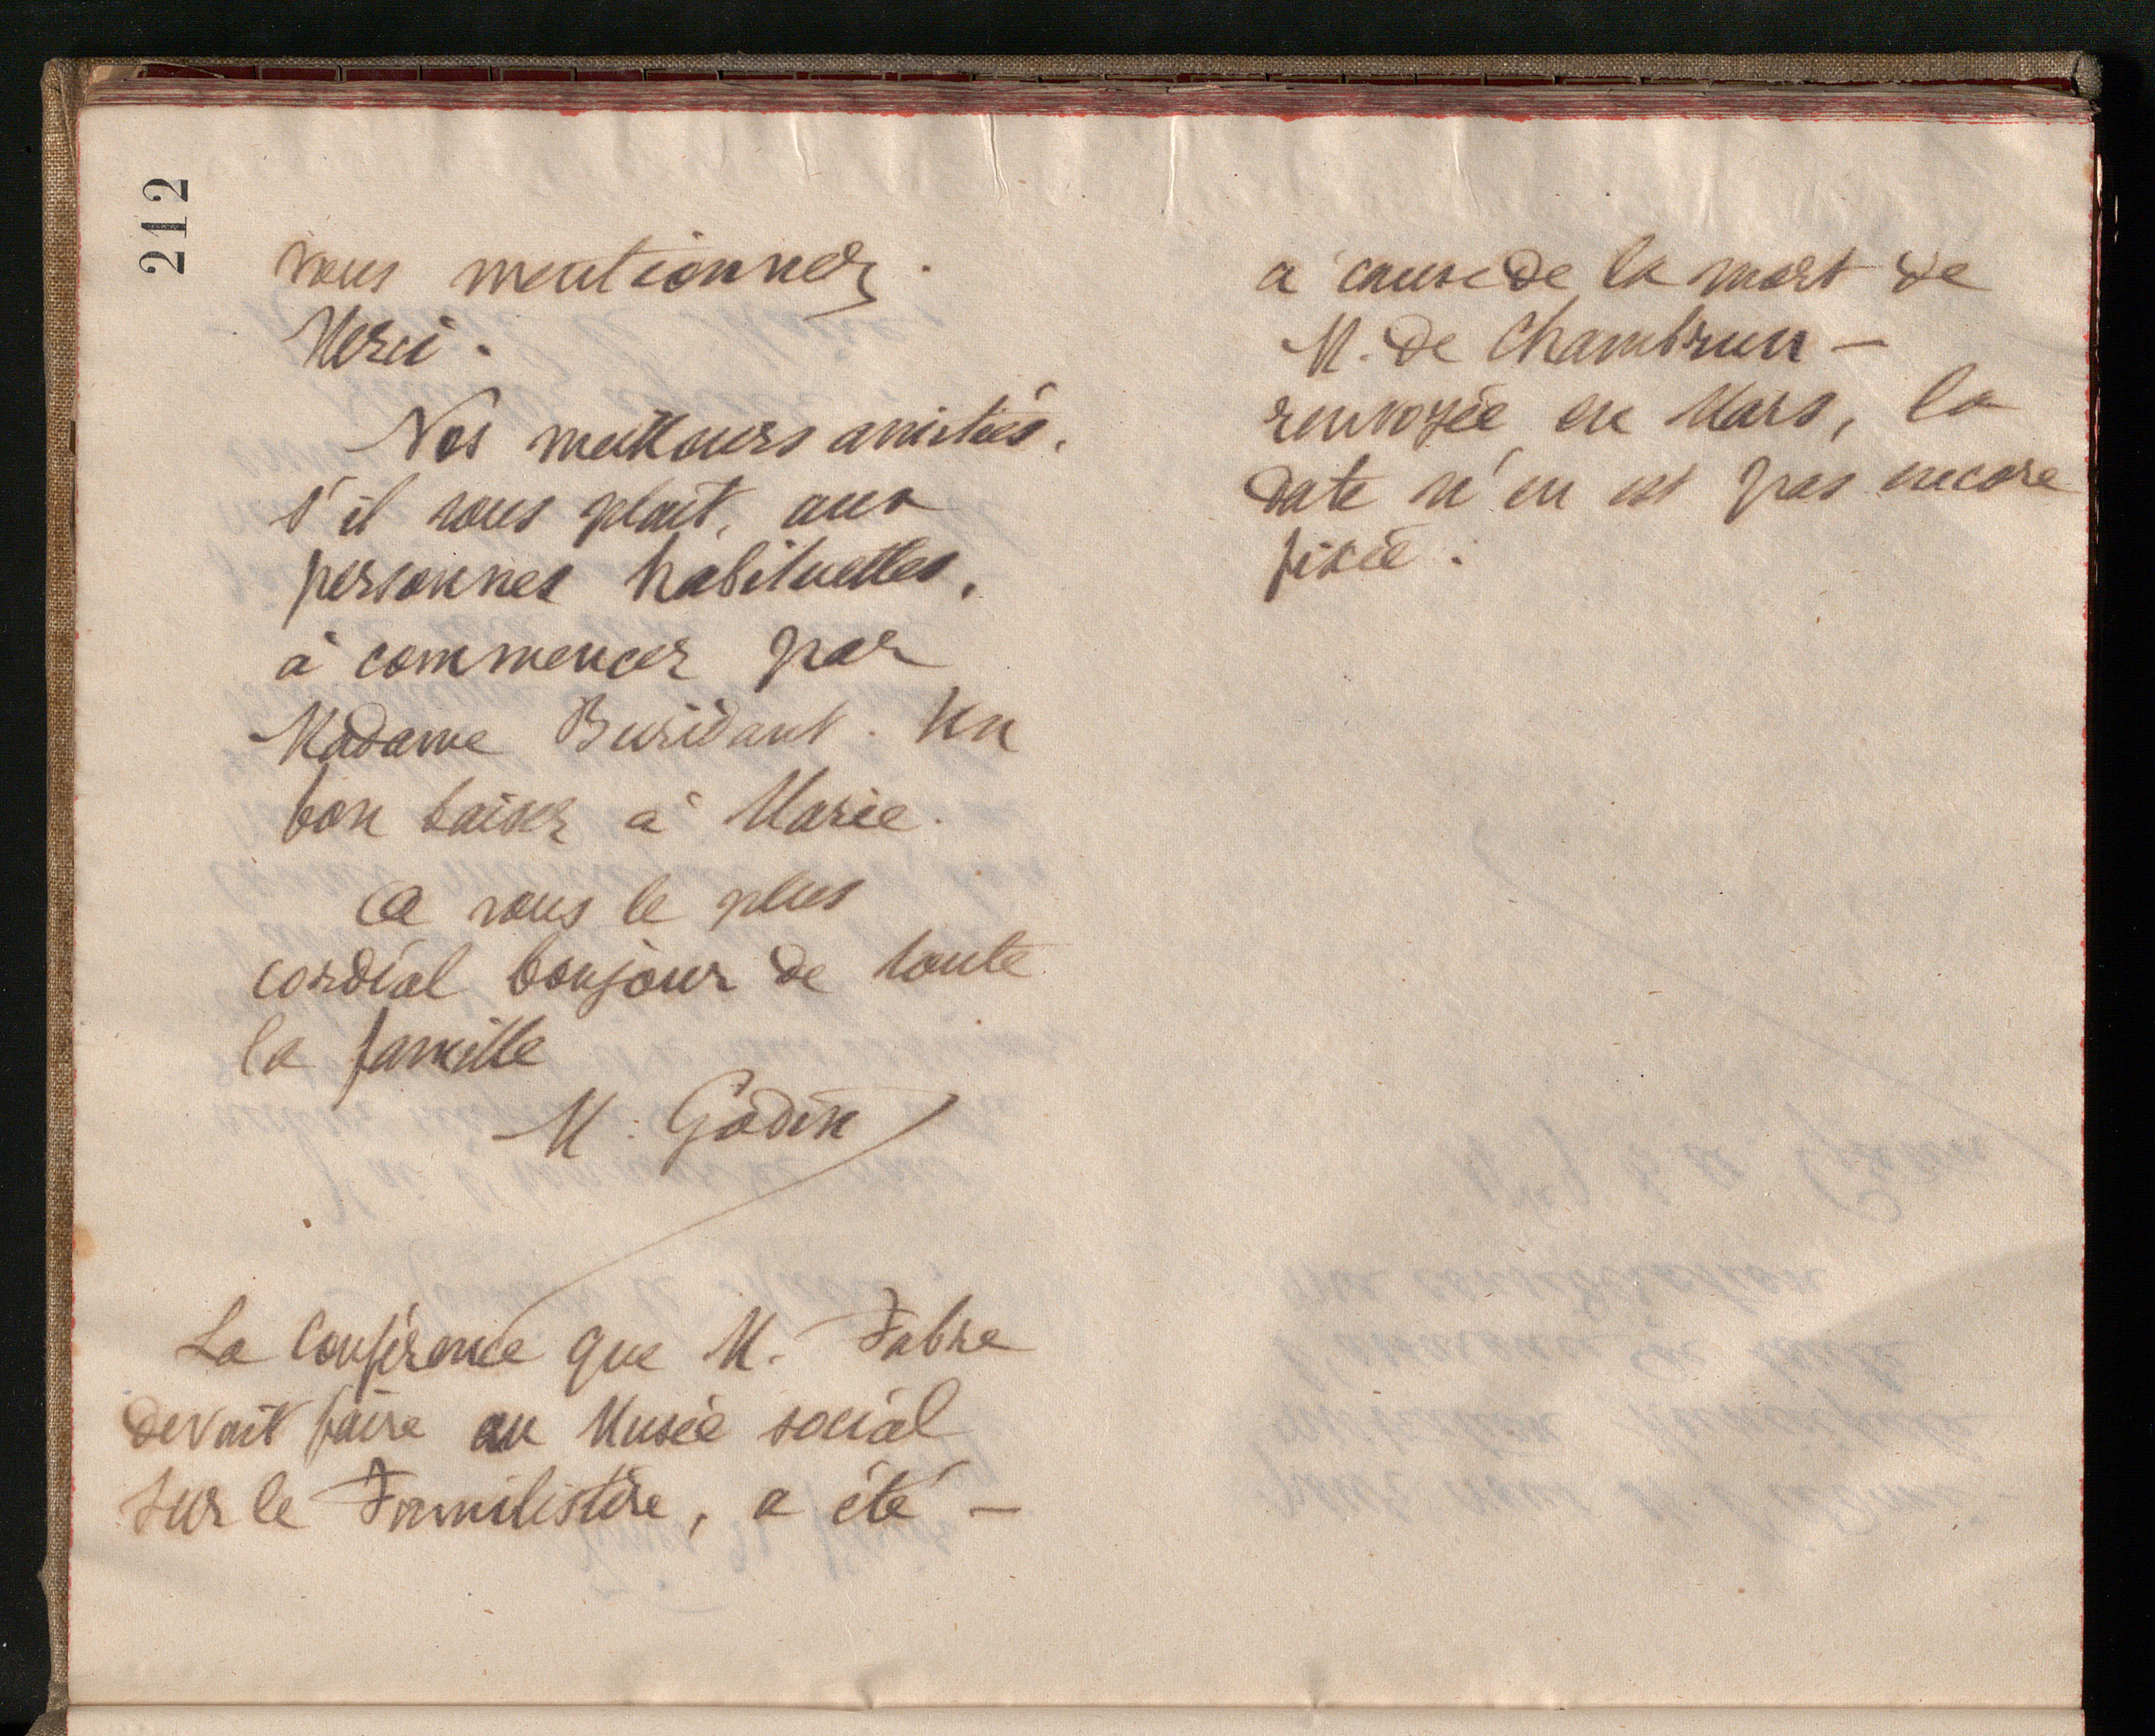 212
vous mentionnez.
Merci.
Nos meilleurs amitiés,
s'il vous plait, aux
personnes habituelles,
à commencer par
Madame Buridant. Un
bon baiser à Marie.
A vous le plus
cordial bonjour de toute
la famille
M. Godin
La Conférence que M. Fabre
devait faire au Musée social
sur le Familistère, a été –
à cause de la mort de
M. de Chambrun –
renvoyée en Mars, la
date n'en est pas encore
fixée.